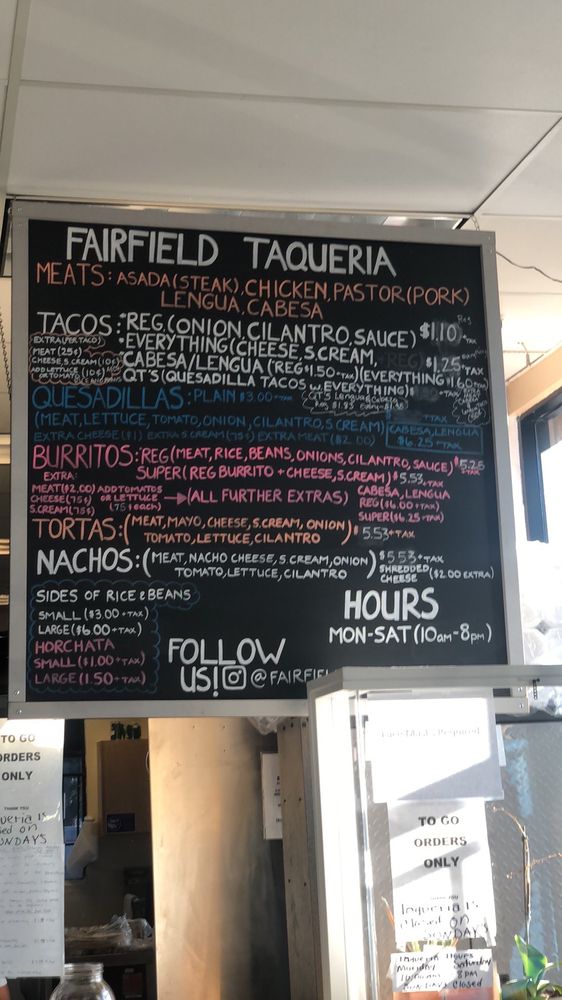 FAIRFIELD TAQUERIA
MEATS: ASADA (STEAK), CHICKEN, PASTOR (PORK)
LENGUA, CABESA
TACOS: •REG. (ONION, CILANTRO, SAUCE) $1.10 +TAX
•EVERYTHING (CHEESE, S.CREAM, $1.25 +TAX
CABESA/LENGUA (REG $1.50 +TAX) (EVERYTHING $1.60 +TAX)
QT'S (QUESADILLA TACOS w. EVERYTHING)
EXTRA (PER TACO)
MEAT (25¢)
CHEESE, S.CREAM (10¢)
ADD LETTUCE (10¢)
OR TOMATO
QT'S Lengua/Cabeza
Reg $1.85
QUESADILLAS: PLAIN $3.00 +TAX
(MEAT, LETTUCE, TOMATO, ONION, CILANTRO, S CREAM) +TAX
EXTRA CHEESE ($1) EXTRA S CREAM (75¢) EXTRA MEAT ($2.00)
CABESA, LENGUA
$6.25 +TAX
BURRITOS: REG (MEAT, RICE, BEANS, ONIONS, CILANTRO, SAUCE) $5.25 +TAX
SUPER (REG BURRITO + CHEESE, S.CREAM) $5.53 +TAX
EXTRA:
MEAT ($2.00) ADD TOMATOS
CHEESE (75¢) OR LETTUCE
S.CREAM (75¢) (75¢ each)
→ (ALL FURTHER EXTRAS)
CABESA, LENGUA
REG ($6.00 +TAX)
SUPER ($6.25 +TAX)
TORTAS: (MEAT, MAYO, CHEESE, S.CREAM, ONION
TOMATO, LETTUCE, CILANTRO) $5.53 +TAX
NACHOS: (MEAT, NACHO CHEESE, S.CREAM, ONION
TOMATO, LETTUCE, CILANTRO) $5.53 +TAX
SHREDDED CHEESE ($2.00 EXTRA)
SIDES OF RICE & BEANS
SMALL ($3.00 +TAX)
LARGE ($6.00 +TAX)
HORCHATA
SMALL ($1.00 +TAX)
LARGE (1.50 +TAX)
HOURS
MON-SAT (10am-8pm)
FOLLOW
US! @FAIRFIEL
TO GO
ORDERS
ONLY
THANK YOU
Taqueria is
closed on
SUNDAYS
TO GO
ORDERS
ONLY
THANK YOU
Taqueria is
Closed on
SUNDAYS
Taqueria Hours
Monday Saturday
10:00AM 8PM
SUNDAYS Closed